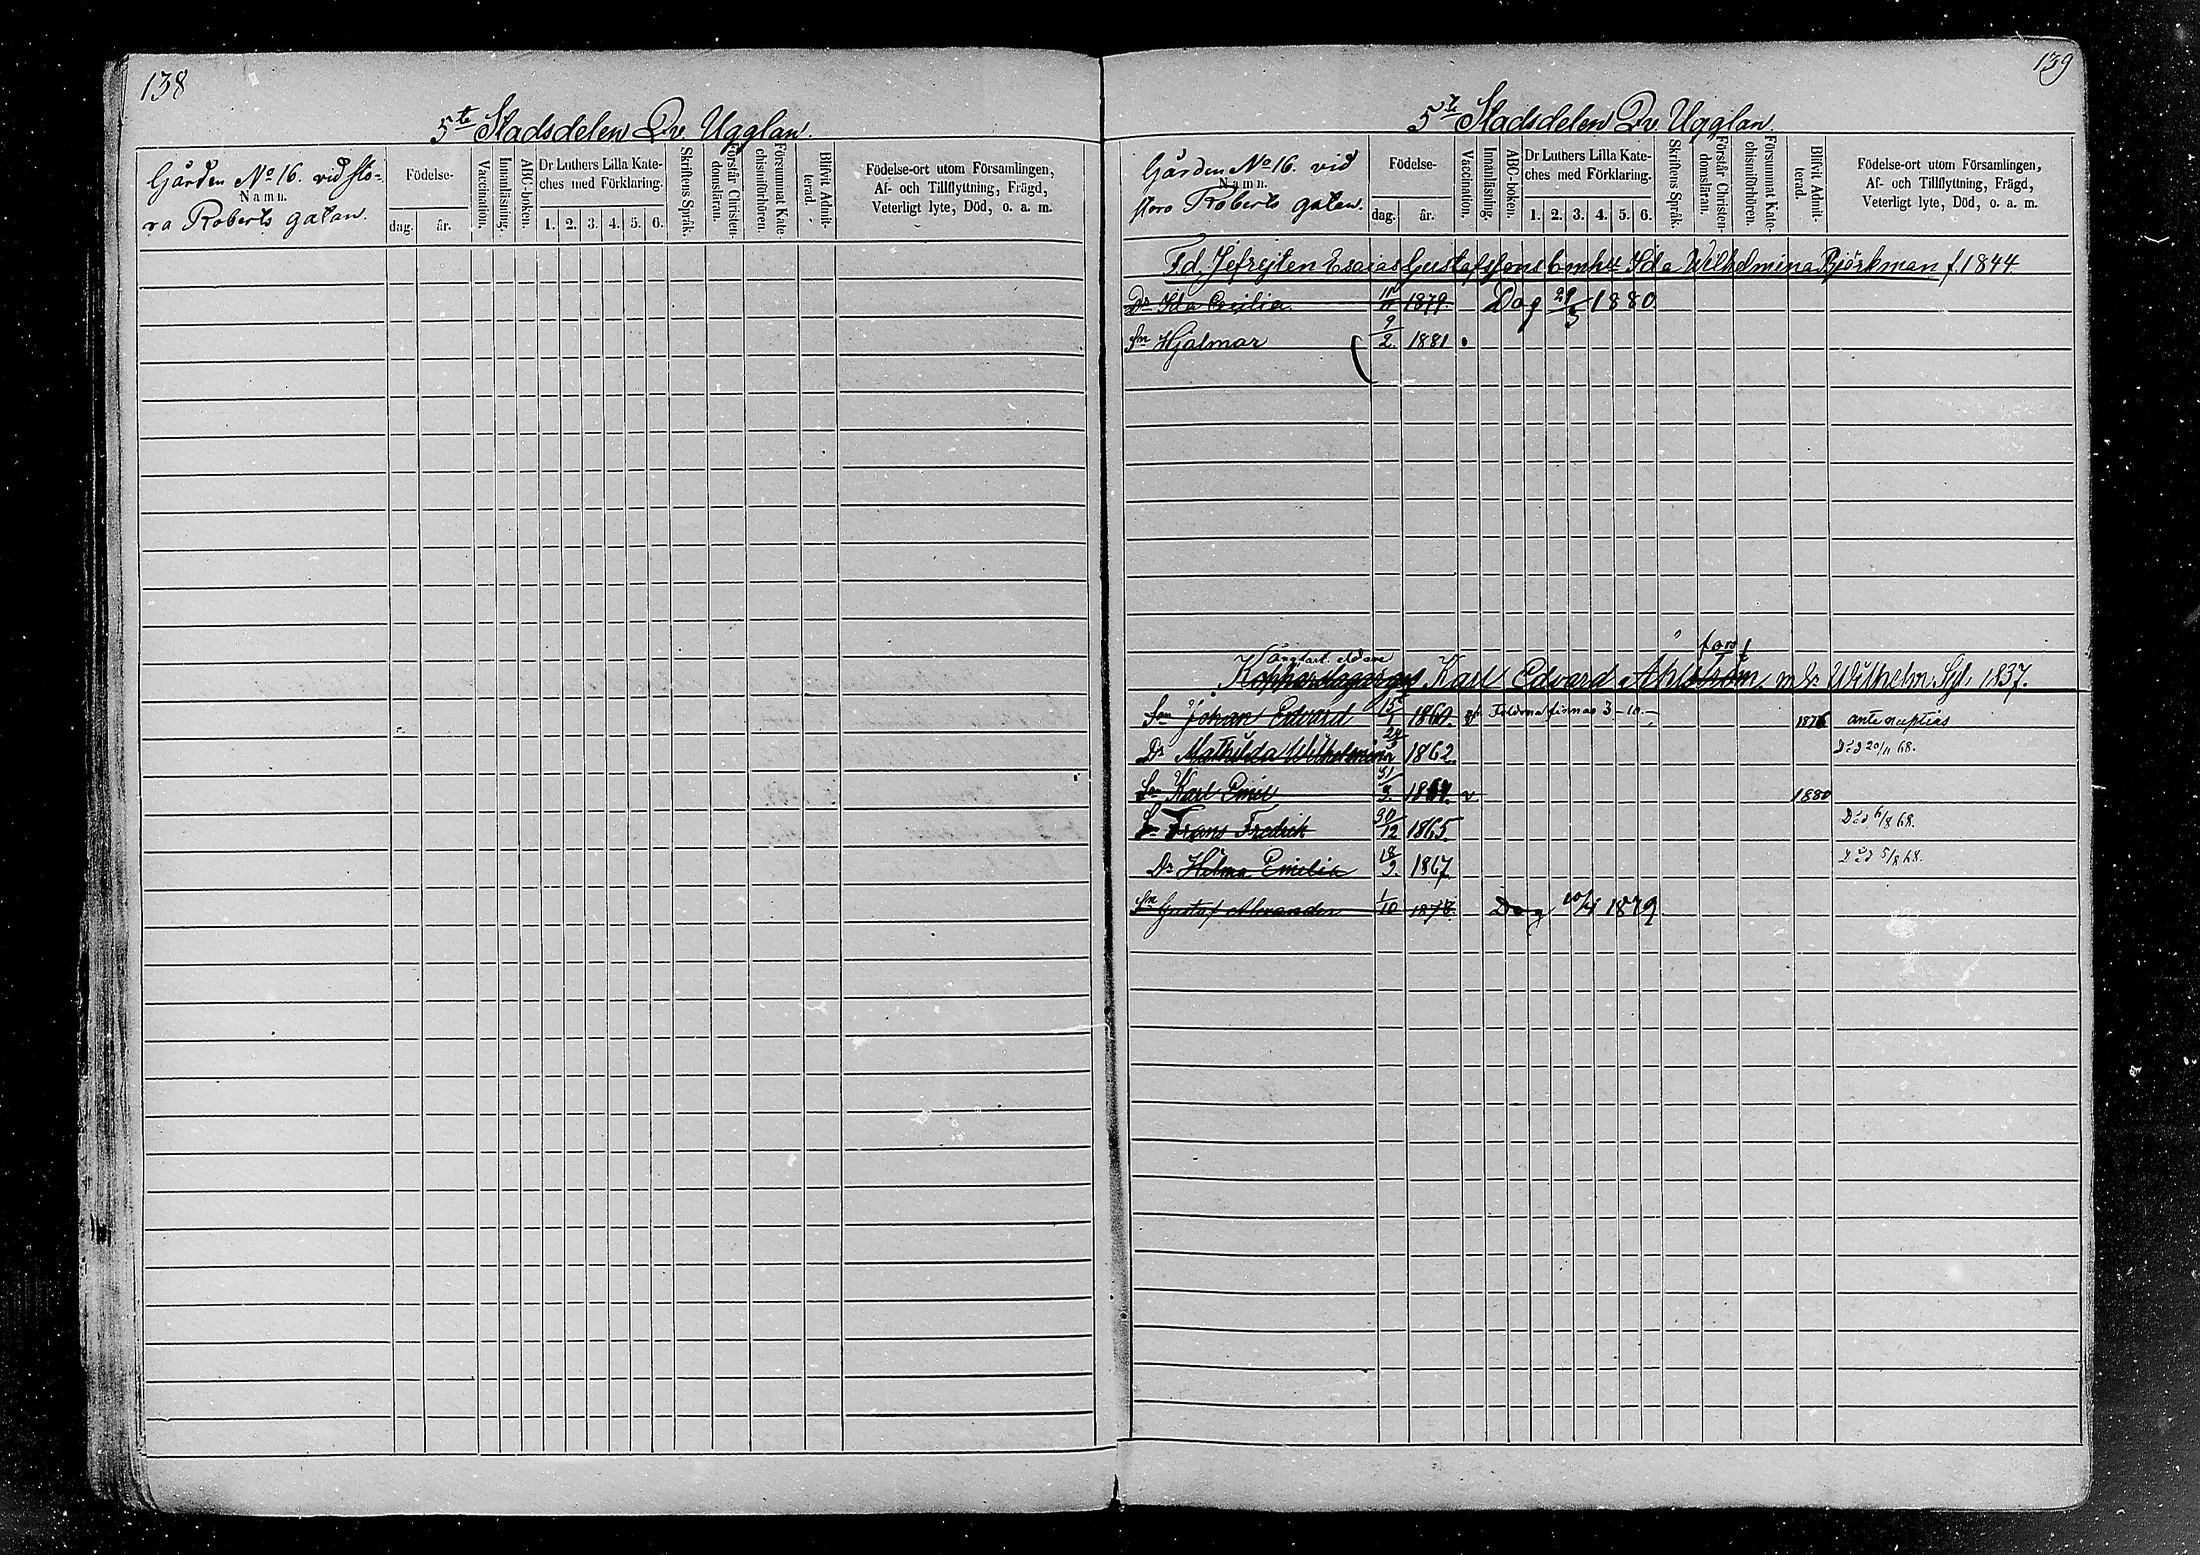 138
5te Stadsdelen Qv. Ugglan.
Gården No 16. vid sto-
Namn.
ra Roberts gatan.
Födelse-
dag. år.
Vaccination.
Innanläsning.
ABC-boken.
Dr Luthers Lilla Kate-
ches med Förklaring.
1. 2. 3. 4. 5. 6.
Skriftens Språk.
Förstår Christen-
domsläran.
Försummat Kate-
chismiförhören.
Blifvit Admit-
terad.
Födelse-ort utom Församlingen,
Af- och Tillflyttning, Frägd,
Veterligt lyte, Död, o. a. m.
139
5te Stadsdelen Qv. Ugglan.
Gården No 16. vid
Namn.
stora Roberts gatan.
Födelse-
dag. år.
Vaccination.
Innanläsning.
ABC-boken.
Dr Luthers Lilla Kate-
ches med Förklaring.
1. 2. 3. 4. 5. 6.
Skriftens Språk.
Förstår Christen-
domsläran.
Försummat Kate-
chismiförhören.
Blifvit Admit-
terad.
Födelse-ort utom Församlingen,
Af- och Tillflyttning, Frägd,
Veterligt lyte, Död, o. a. m.
Fd. Jefrejten Esaias Gustafssons Ida Wilhelmina Björkman f. 1844
Dr Ida Cecilia 1879. Dog 29/3 1880
Sn Hjalmar 9/2 1881
Karl Edvard Ahlström Wilhelm. 1837.
Son Johan Edvard 1860. 3 1876
Dr Mathilda Wilhelmina 1862. Död 20/11 68.
Son Karl Emil 31/3 1864. v 1880
Sn Frans Fredrik 30/12 1865. Död 6/8 68.
Dr Hilma Emilia 18/9 1867 Död 5/8 68.
Sn Gustaf Alexander 1/10 1878. Dog 1879